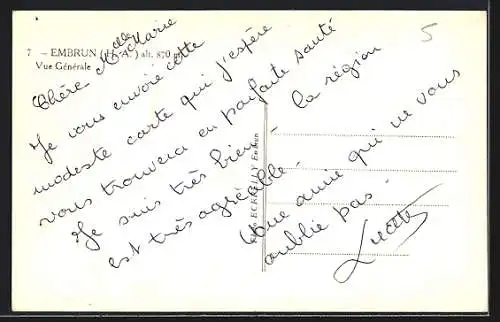 7 - EMBRUN (H.-A.) alt. 870 m
Vue Générale
5
Chère Mlle Marie
Je vous envoie cette
modeste carte qui j'espère
vous trouvera en parfaite santé
Je suis très bien - la région
est très agréable.
Une amie qui ne vous
oublie pas.
Lucette
Embrun